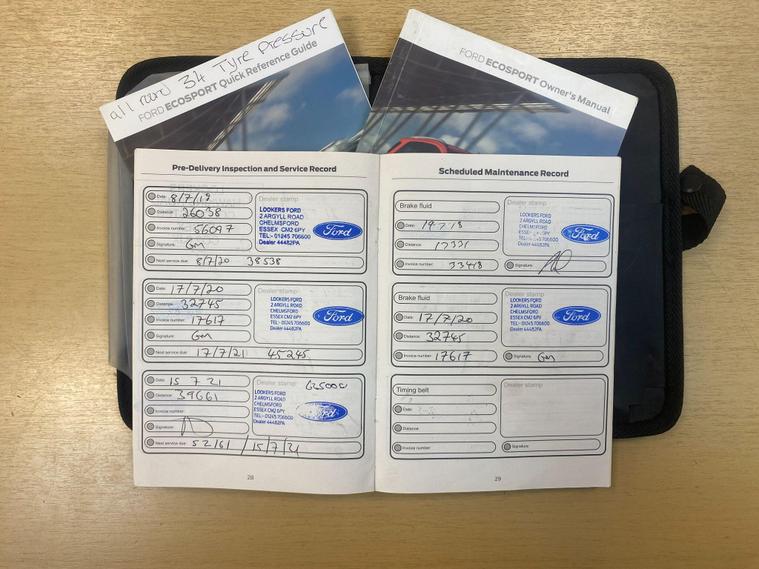 all round 34 Tyre Pressure
FORD ECOSPORT Quick Reference Guide
FORD ECOSPORT Owner's Manual
Pre-Delivery Inspection and Service Record
Date: 8/7/19
Distance: 26038
Invoice number: 56097
Signature: Gm
Next service due: 8/7/20 38538
Dealer stamp
LOOKERS FORD
2 ARGYLL ROAD
CHELMSFORD
ESSEX CM2 6PY
TEL:- 01245 706600
Dealer 44482PA
Ford
Date: 17/7/20
Distance: 32745
Invoice number: 17617
Signature: Gm
Next service due: 17/7/21 45245
Dealer stamp
LOOKERS FORD
2 ARGYLL ROAD
CHELMSFORD
ESSEX CM2 6PY
TEL:- 01245 706600
Dealer 44482PA
Ford
Date: 15 7 21
Distance: 39661
Invoice number:
Signature:
Next service due: 52161 /15/7/
Dealer stamp
LOOKERS FORD
2 ARGYLL ROAD
CHELMSFORD
ESSEX CM2 6PY
TEL:- 01245 706600
Dealer 44482PA
28
Scheduled Maintenance Record
Brake fluid
Date:
Distance:
Invoice number: 33418
Signature:
Dealer stamp
LOOKERS FORD
2 ARGYLL ROAD
CHELMSFORD
ESSEX
TEL:- 01245 706600
Dealer 44482PA
Ford
Brake fluid
Date: 17/7/20
Distance: 32745
Invoice number: 17617
Signature: Gm
Dealer stamp
LOOKERS FORD
2 ARGYLL ROAD
CHELMSFORD
ESSEX CM2 6PY
TEL:- 01245 706600
Dealer 44482PA
Ford
Timing belt
Date:
Distance:
Invoice number:
Signature:
Dealer stamp
29